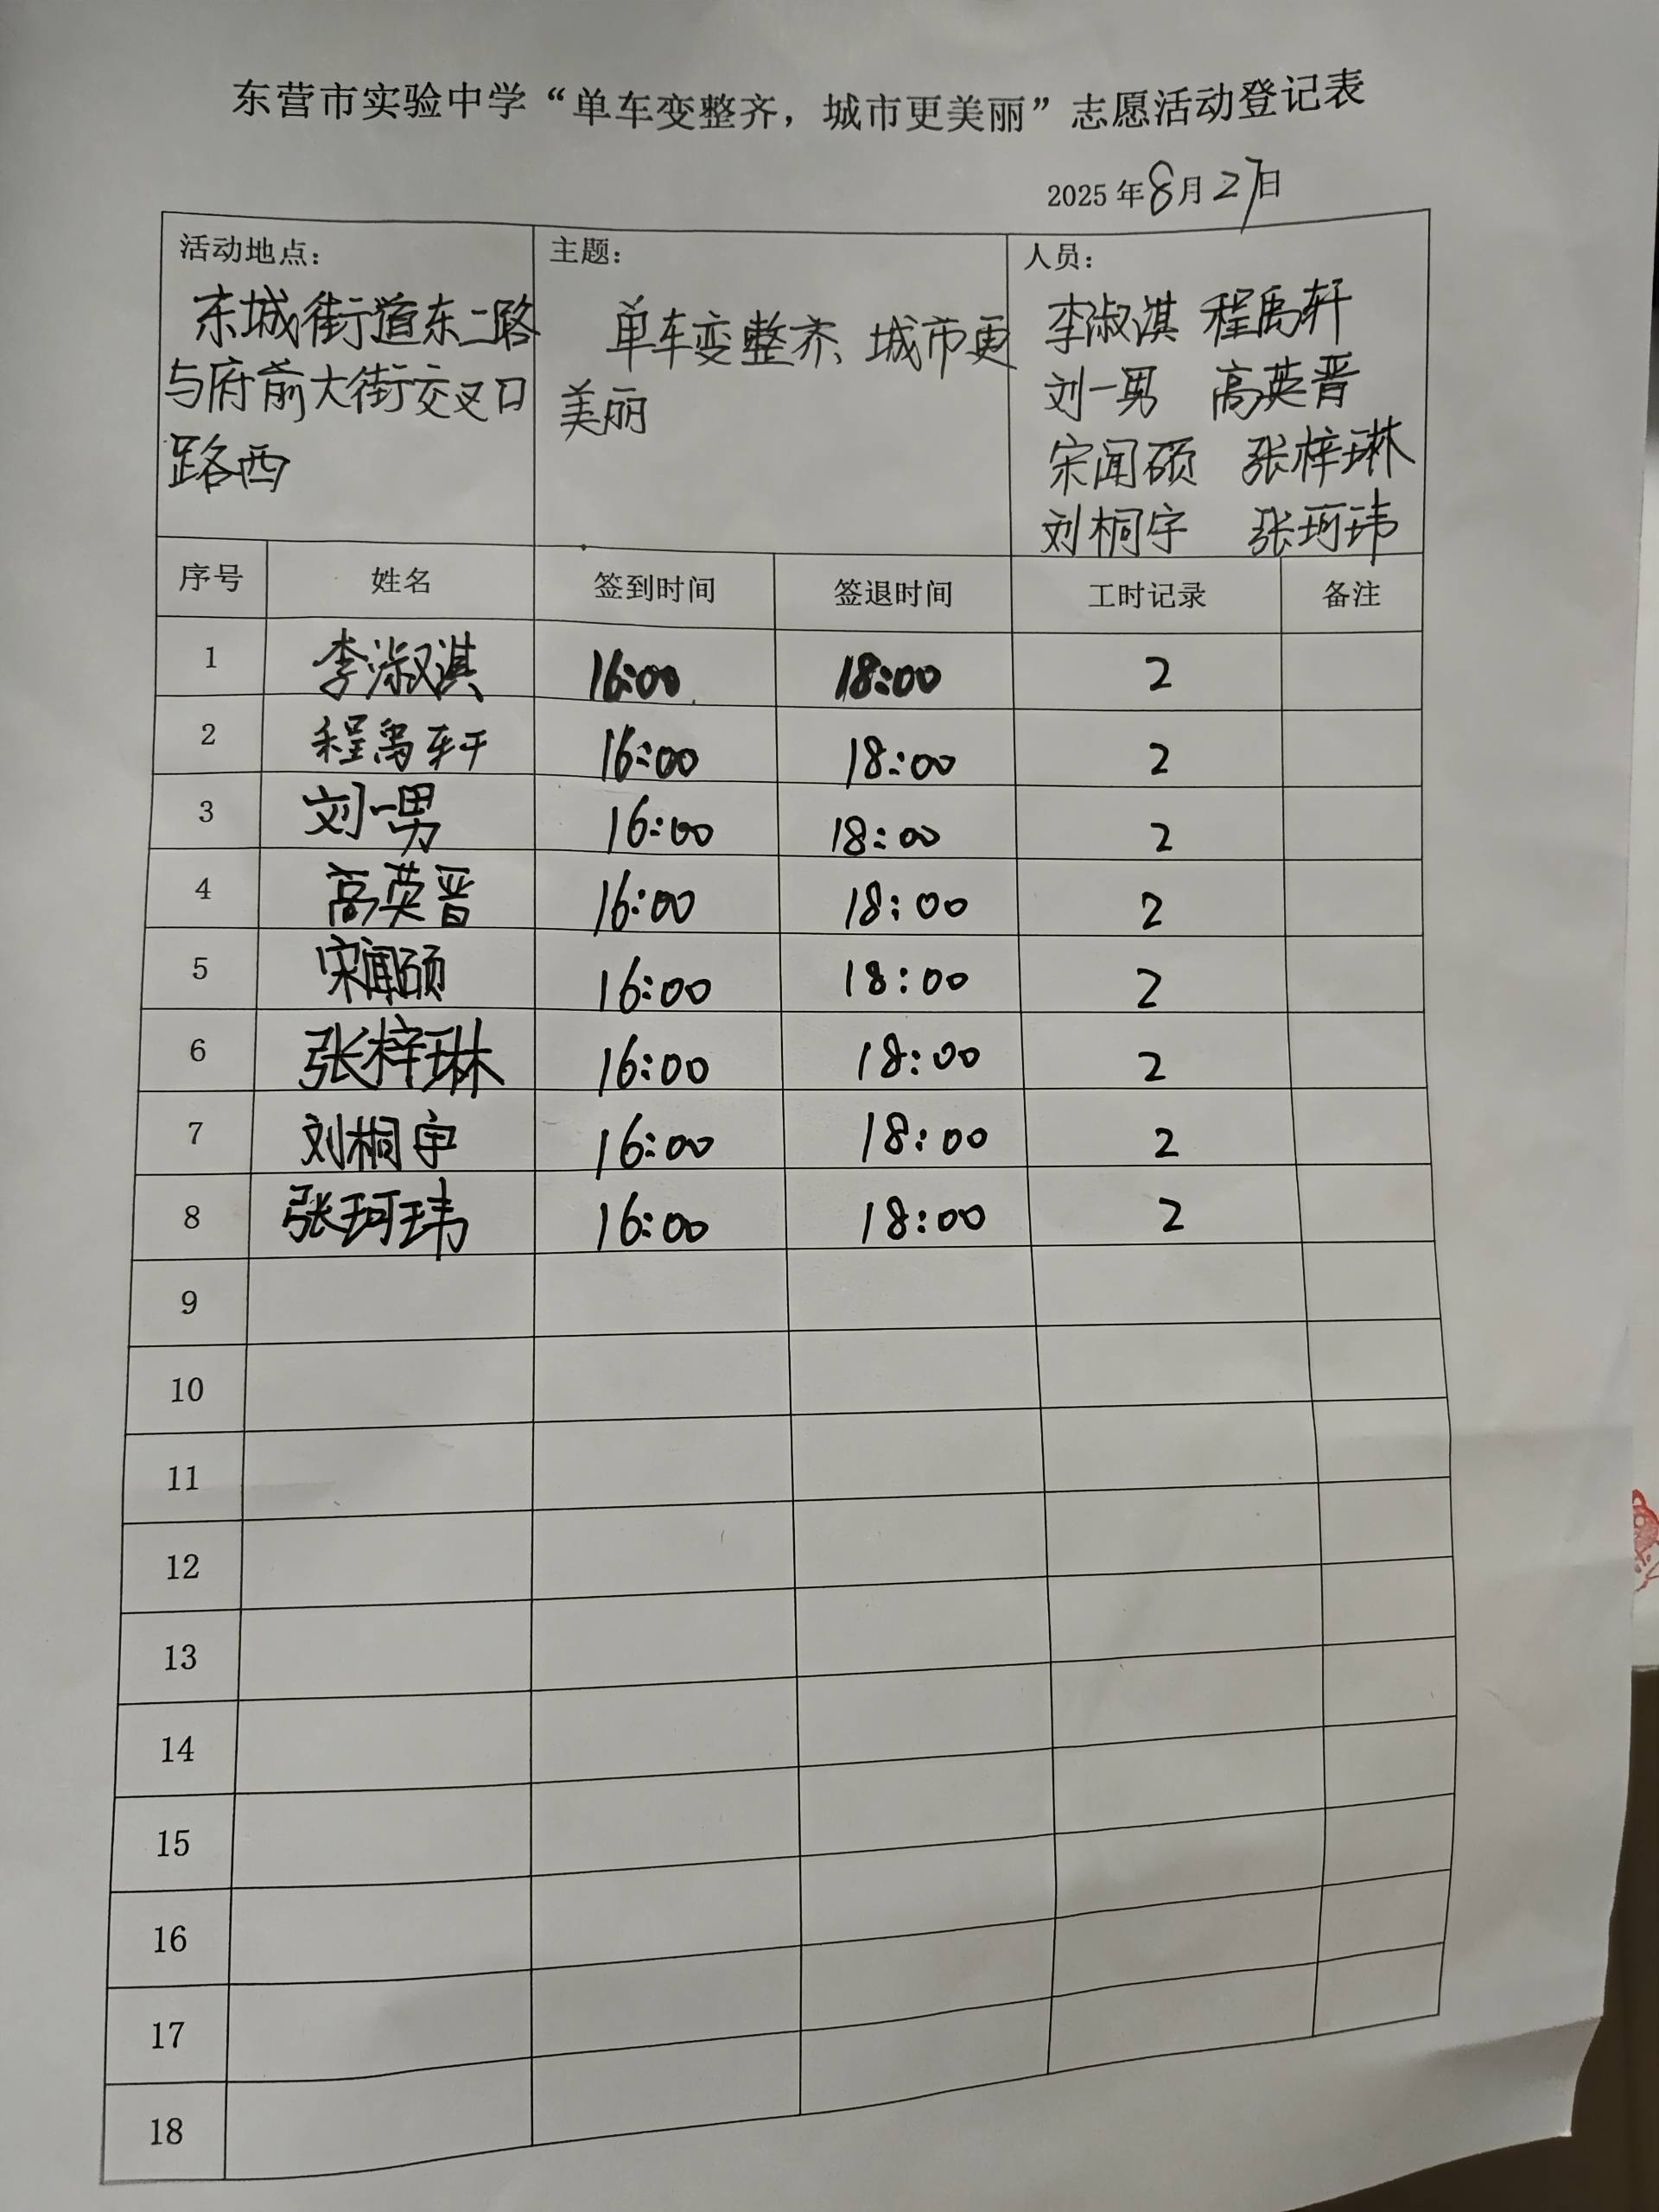 东营市实验中学“单车变整齐，城市更美丽”志愿活动登记表
2025年8月27日
活动地点：
东城街道东二路
与府前大街交叉口
路西
主题：
单车变整齐、城市更
美丽
人员：
李淑淇 程禹轩
刘一男 高英晋
宋闻硕 张梓琳
刘桐宇 张珂玮
序号 姓名 签到时间 签退时间 工时记录 备注
1 李淑淇 16:00 18:00 2
2 程禹轩 16:00 18:00 2
3 刘一男 16:00 18:00 2
4 高英晋 16:00 18:00 2
5 宋闻硕 16:00 18:00 2
6 张梓琳 16:00 18:00 2
7 刘桐宇 16:00 18:00 2
8 张珂玮 16:00 18:00 2
9
10
11
12
13
14
15
16
17
18